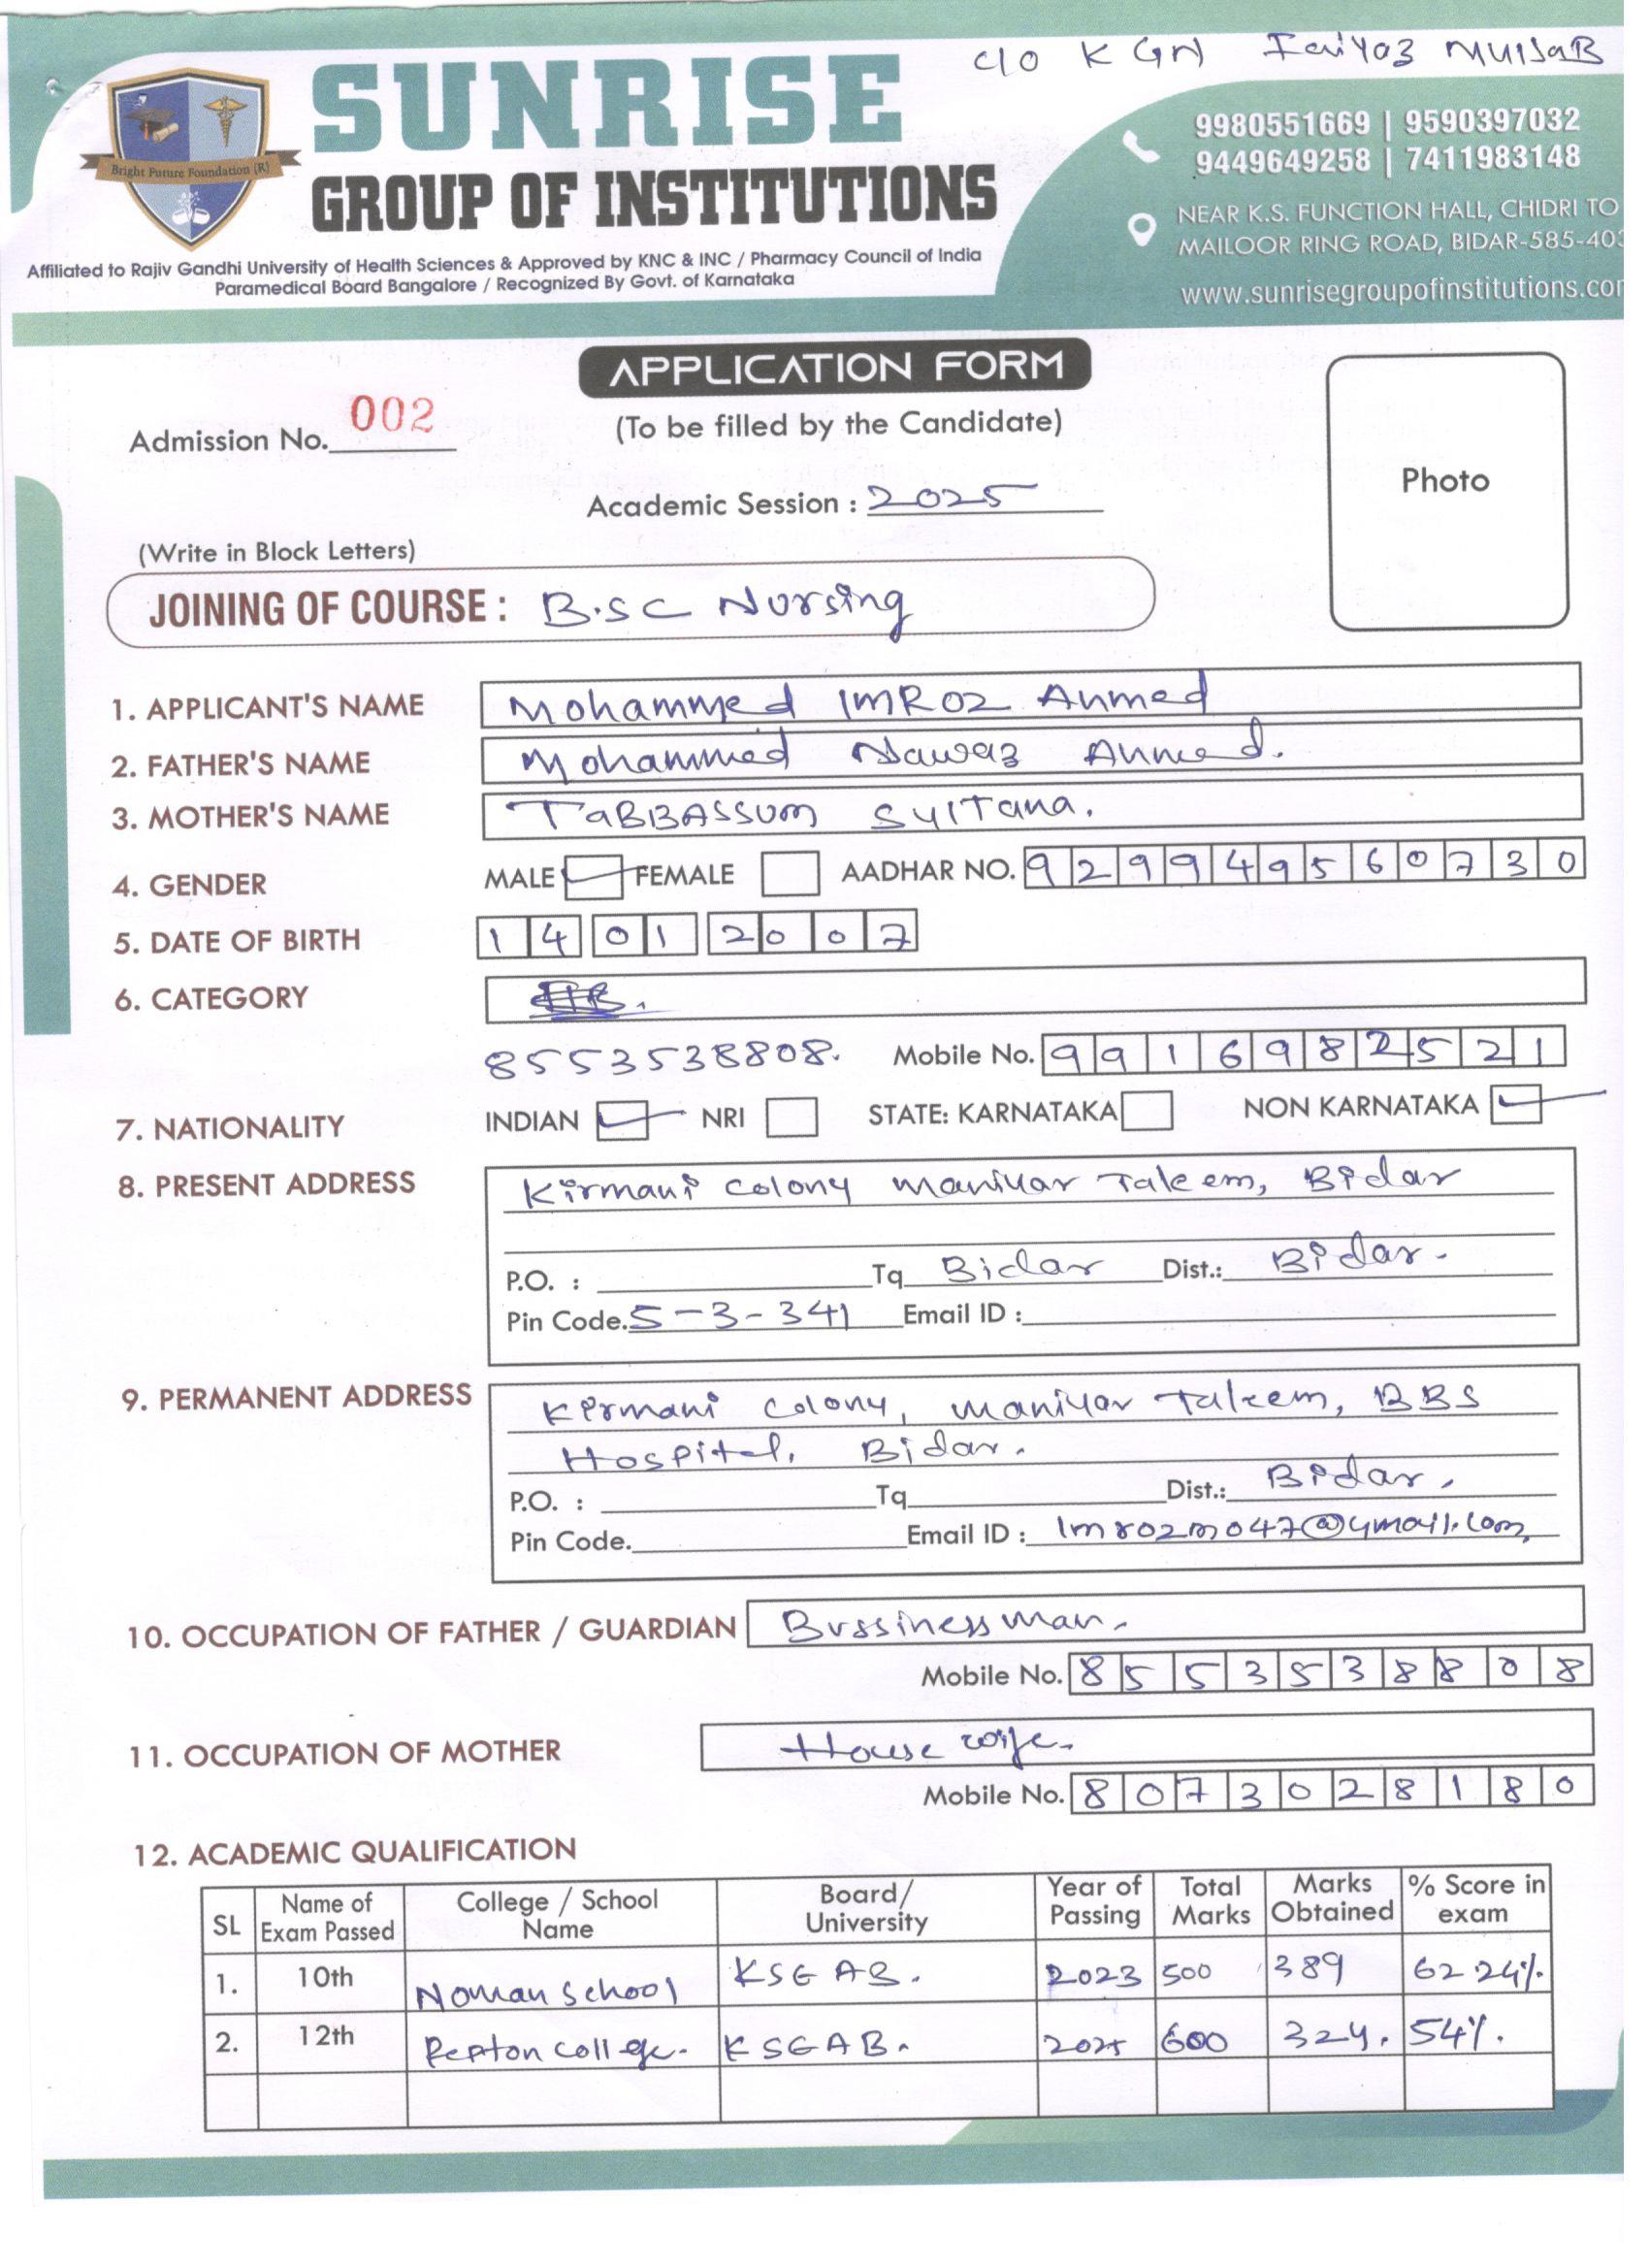 c/o K GN Faiyaz MUJJaB
SUNRISE
GROUP OF INSTITUTIONS
Bright Future Foundation (R)
Affiliated to Rajiv Gandhi University of Health Sciences & Approved by KNC & INC / Pharmacy Council of India
Paramedical Board Bangalore / Recognized By Govt. of Karnataka
9980551669 | 9590397032
9449649258 | 7411983148
NEAR K.S. FUNCTION HALL, CHIDRI TO
MAILOOR RING ROAD, BIDAR-585-403
www.sunrisegroupofinstitutions.com
APPLICATION FORM
Admission No. 002
(To be filled by the Candidate)
Photo
Academic Session : 2025
(Write in Block Letters)
JOINING OF COURSE : B.SC Nursing
1. APPLICANT'S NAME Mohammed IMROZ Ahmed
2. FATHER'S NAME Mohammed Nawaz Ahmed.
3. MOTHER'S NAME TaBBASSUM SUlTana.
4. GENDER MALE FEMALE AADHAR NO. 929949560730
5. DATE OF BIRTH 14 01 2007
6. CATEGORY
8553538808. Mobile No. 9916982521
7. NATIONALITY INDIAN NRI STATE: KARNATAKA NON KARNATAKA
8. PRESENT ADDRESS Kirmani colony maniyar Taleem, Bidar
P.O. : Tq Bidar Dist.: Bidar.
Pin Code. 5-3-341 Email ID :
9. PERMANENT ADDRESS Kirmani colony, maniyar Taleem, BBS
Hospital, Bidar.
P.O. : Tq Dist.: Bidar.
Pin Code. Email ID : Imrozm047@gmail.com
10. OCCUPATION OF FATHER / GUARDIAN Bussinessman.
Mobile No. 8553538808
11. OCCUPATION OF MOTHER House wife.
Mobile No. 8073028180
12. ACADEMIC QUALIFICATION
SL Name of Exam Passed College / School Name Board/ University Year of Passing Total Marks Marks Obtained % Score in exam
1. 10th Noman School KSEAB. 2023 500 389 62 24%.
2. 12th Repton college. KSEAB. 2025 600 324. 54%.